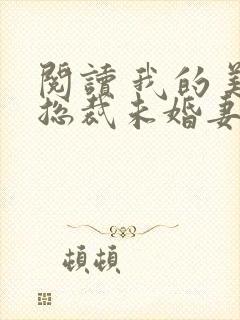 閱讀我的美
总裁未婚妻
頓頓